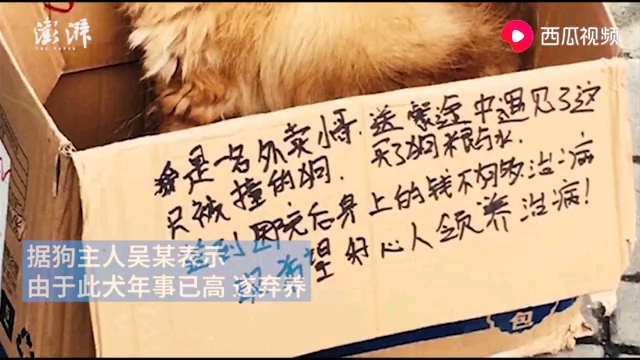 澎湃
THE PAPER
西瓜视频
我是一名外卖小哥.送餐途中遇见了这
只被撞的狗.买了狗粮与水.
送到医院后身上的钱不够治病
希望好心人领养治病!
据狗主人吴某表示
由于此犬年事已高 遂弃养
包